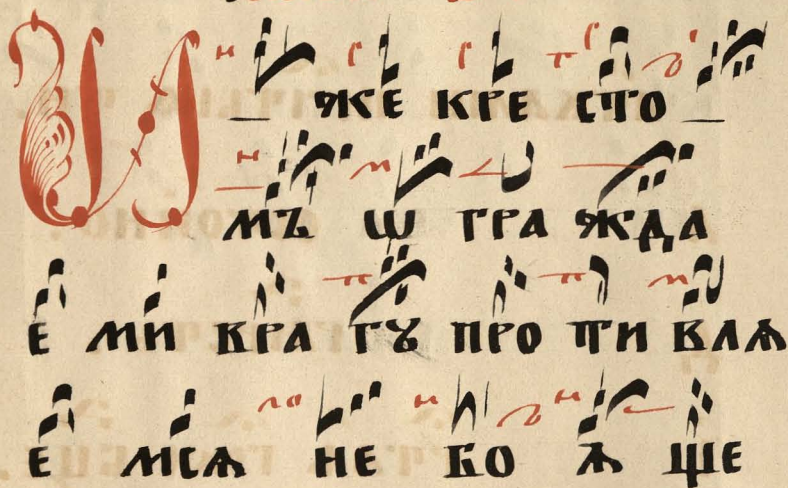 И же кре сто
мъ ѡ гра жда
е ми вра гꙋ про ти влѧ
е мсѧ не бо ѧ ще